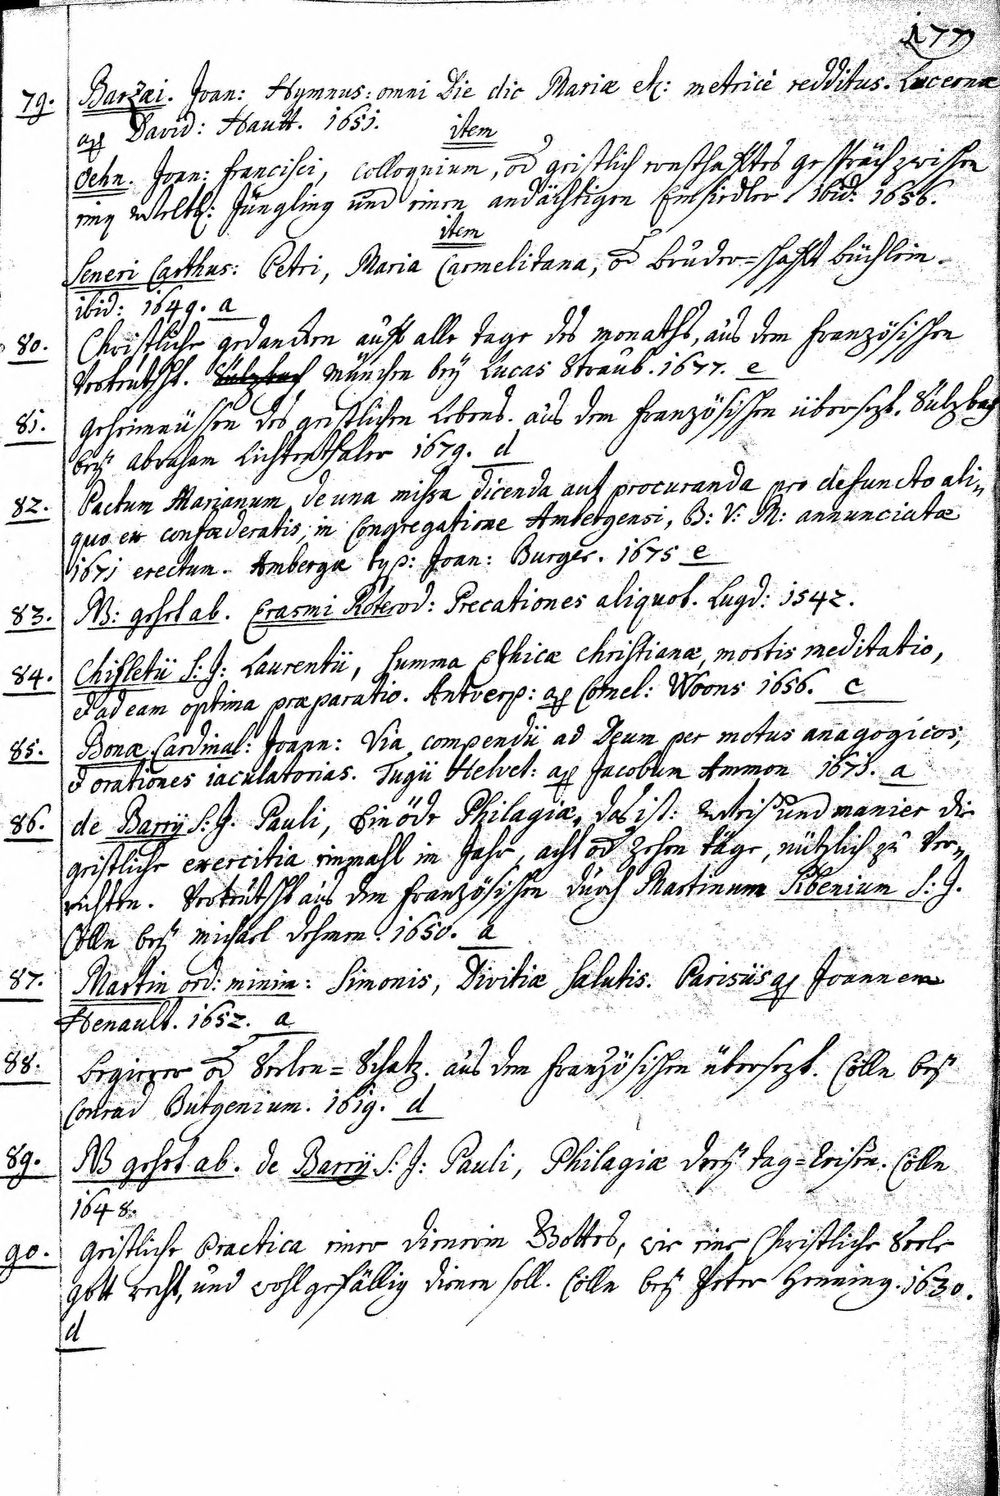 177
79. Barzæi. Joan: Hymnus: omni Die dic Mariæ etc: metricè redditus. Lucernæ
ap David: Hautt. 1651. item
Oehn. Joan: Francisci, Colloquium, od geistlich ernsthafftes gespräch zwischen
eing weltl: Jüngling und einen andächtigen Einsidler. ibid: 1656.
item
Seneri Carthus: Petri, Maria Carmelitana, od bruder=schafft büchlein.
ibid: 1649. a
80. Christliche gedancken auff alle tage des monaths, aus dem französischen
Verteutscht. München bey Lucas Straub. 1677. e
81. geheimnüssen des geistlichen Lebens. aus dem französischen übersezt. Sulzbach
bey abraham Lichtenthaler 1679. d
82. Pactum Marianum, de una missa dicenda aut procuranda pro defuncto ali-
quo ex confœderatis, in Congregatione Ambergensi, B: V: M: annunciatæ
1671 erectum. Ambergæ typ: Joan: Burger. 1675 e
83. NB: gehet ab. Erasmi Roterod: Precationes aliquot. Lugd: 1542.
84. Chifletii S: J: Laurentii, Summa Ethicæ christianæ, mortis meditatio,
& ad eam optima præparatio. Antverp: ap Cornel: Woons 1656. c
85. Bonæ Cardinal: Joann: Via compendii ad Deum per motus anagogicos,
& orationes iaculatorias. Tugii Helvet: ap Jacobum Ammon 1671. a
86. de Barry S: J. Pauli, Einöde Philagiæ, das ist: weis und manier die
geistliche exercitia einmahl im Jahr, acht od zehen täge, nützlich zu Ver-
richten. Verteutscht aus dem französischen durch Martinum Sibenium S: J.
Cölln bey michael dehmen. 1650. a
87. Martin ord: minim: Simonis, Divitiæ salutis. Parisiis ap Joannem
Henault. 1652. a
88. begirrer od Seelen=Schatz. aus dem französischen übersezt. Cölln bey
Conrad Butgenium. 1619. d
89. NB gehet ab. de Barry S: J: Pauli, Philagiæ drey tag=reisen. Cölln
1648.
90. geistliche Practica einer dienerin Gottes, wie eine Christliche Seele
gott recht, und wohlgefällig dienen soll. Cölln bey Peter Henning. 1630.
d